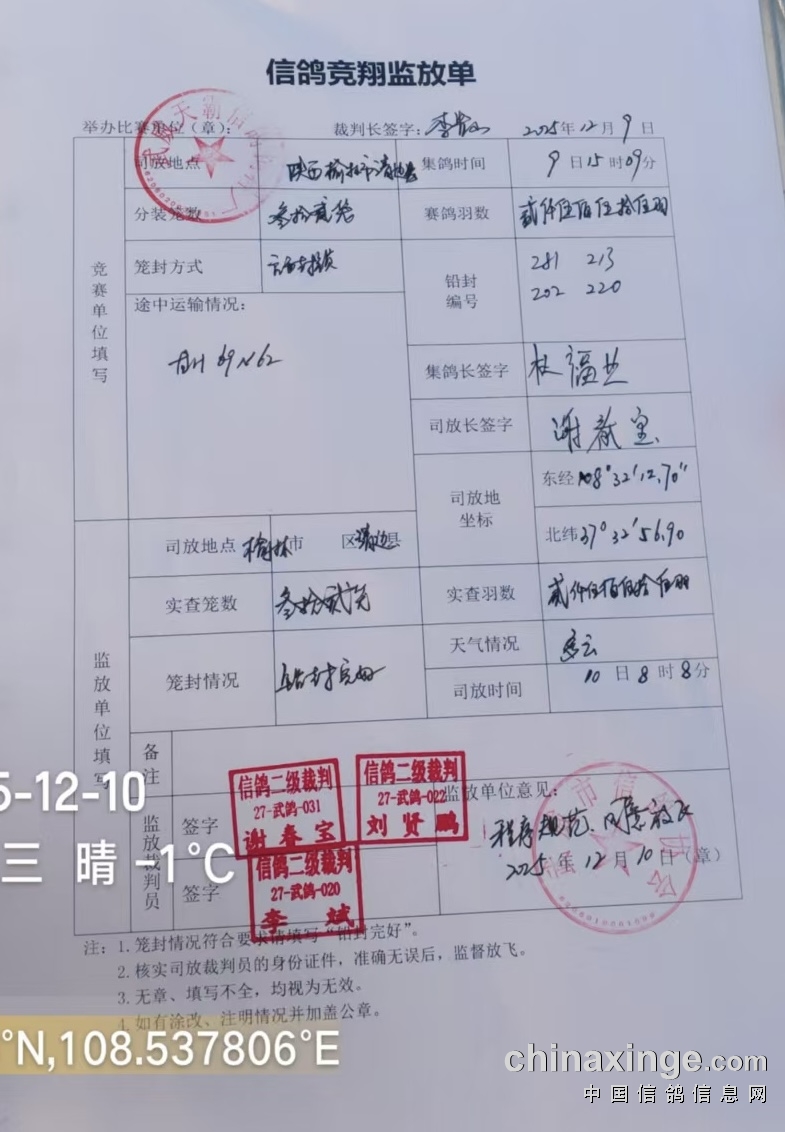 信鸽竞翔监放单
举办比赛单位（章）： 裁判长签字： 2025年12月9日
竞赛单位填写
司放地点 陕西榆林市靖边县 集鸽时间 9日15时09分
分装笼数 叁拾贰笼 赛鸽羽数 贰仟伍佰伍拾伍羽
笼封方式 铅封 281 213
编号 202 220
途中运输情况：
集鸽长签字
司放长签字 谢春宝
司放地坐标 东经108°32′12.70″
北纬37°32′56.90
监放单位填写
司放地点 榆林市 区靖边县
实查笼数 叁拾贰笼 实查羽数 贰仟伍佰伍拾伍羽
笼封情况 铅封完好 天气情况 多云
司放时间 10日8时8分
备注
监放裁判员
签字
签字
信鸽二级裁判
27-武鸽-031
谢春宝
信鸽二级裁判
27-武鸽-022
刘贤鹏
信鸽二级裁判
27-武鸽-020
李斌
监放单位意见：
程序规范、同意放飞
2025年12月10日（章）
5-12-10
三 晴 -1℃
注：1.笼封情况符合要求请填写“铅封完好”。
2.核实司放裁判员的身份证件，准确无误后，监督放飞。
3.无章、填写不全，均视为无效。
4.如有涂改、注明情况并加盖公章。
°N,108.537806°E
chinaxinge.com
中国信鸽信息网